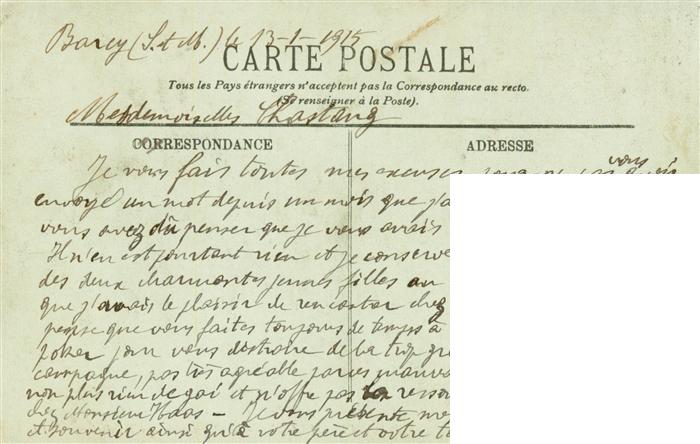 Barcy (S. et M.) le 13-1-1915
CARTE POSTALE
Tous les Pays étrangers n'acceptent pas la Correspondance au recto.
(Se renseigner à la Poste).
Mesdemoiselles Chastang
CORRESPONDANCE
ADRESSE
Je vous fais toutes mes excuses pour ne pas vous avoir
envoyé un mot depuis un mois que j'a
vous avez dû penser que je vous avais
Il n'en est pourtant rien et je conserve
des deux charmantes jeunes filles au
que j'avais le plaisir de rencontrer chez
pense que vous faites toujours de temps à
poker pour vous distraire de la trop gr
campagne, pas très agréable par ces mauva
non plus rien de gai et n'offre pas la resso
chez Monsieur Haas - Je vous présente me
et souvenir ainsi qu'à votre père et votre ta